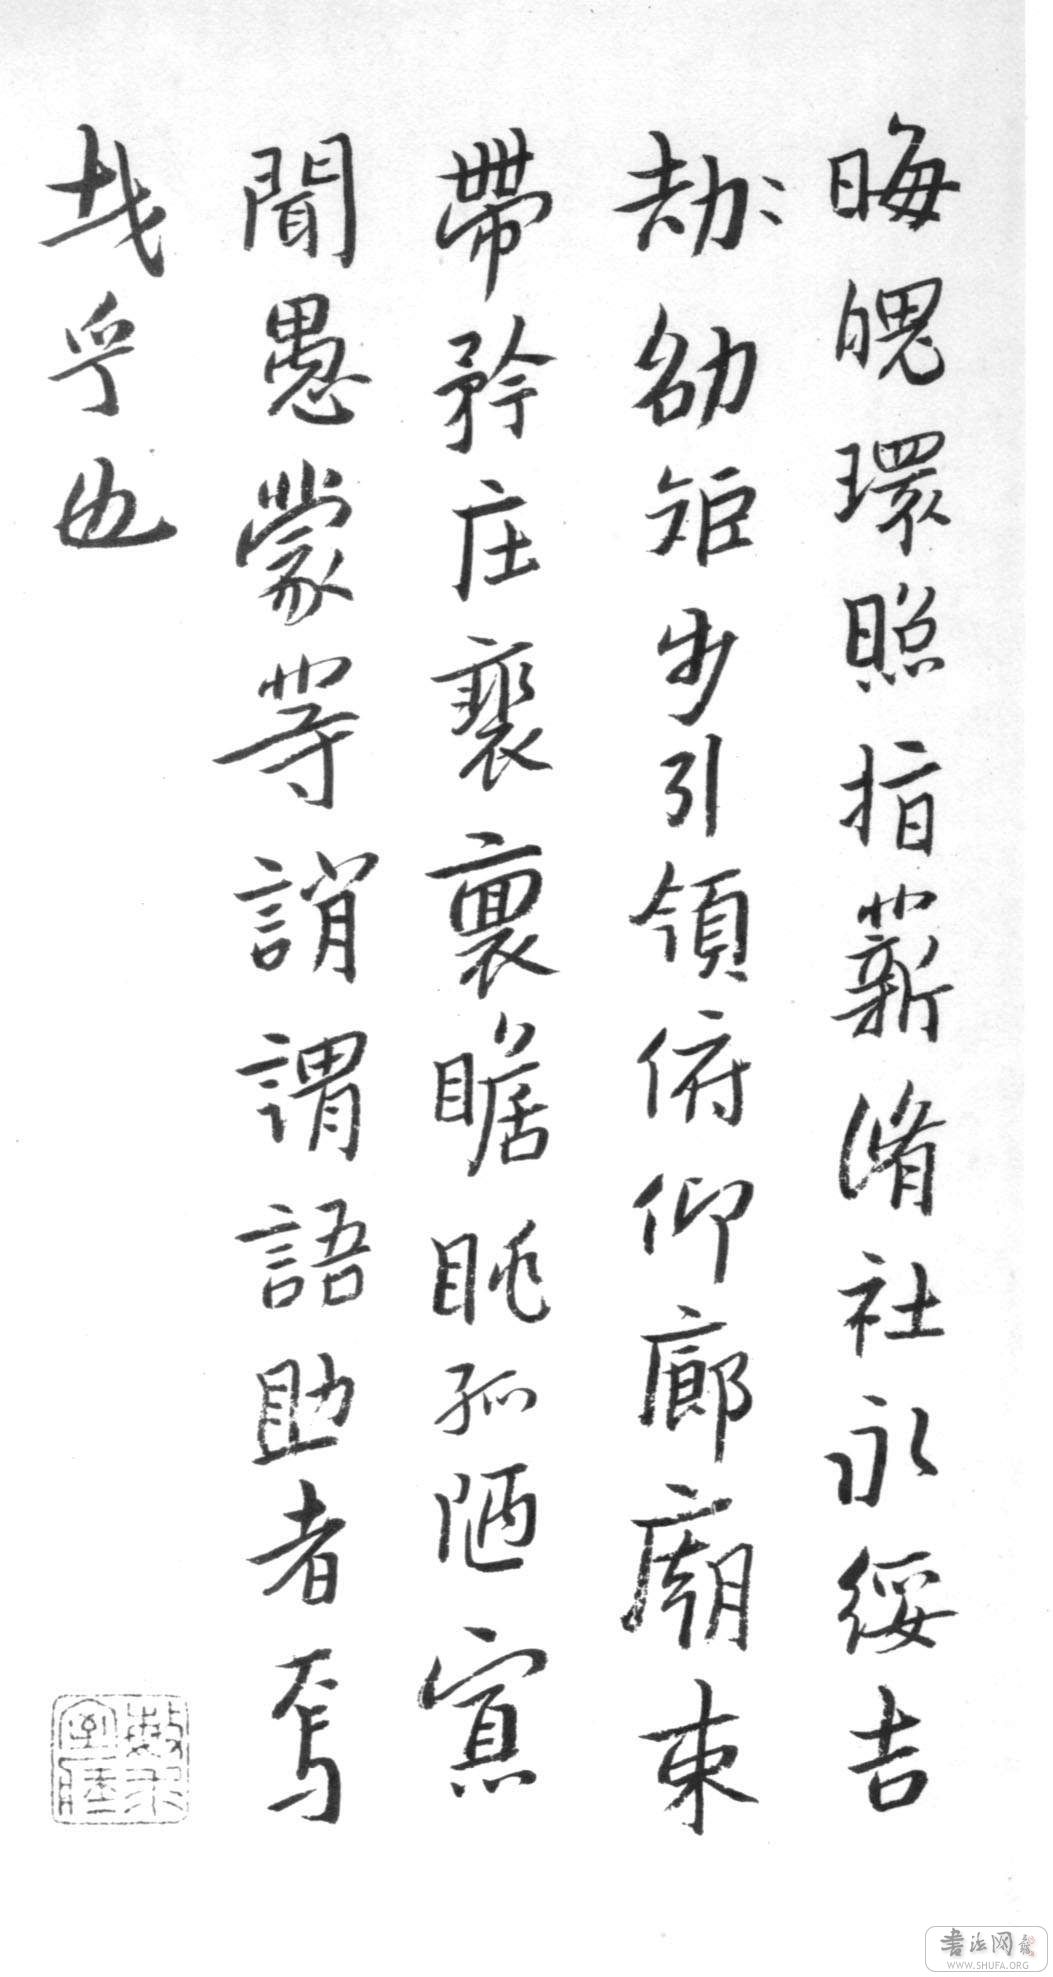 晦魄環照指薪脩社永綏吉
劫劭矩步引領俯仰廊廟束
帶矜庄裵瞻眺孤陋寡
聞愚蒙等誚謂語助者焉
哉乎也
書法网
WWW.SHUFA.ORG